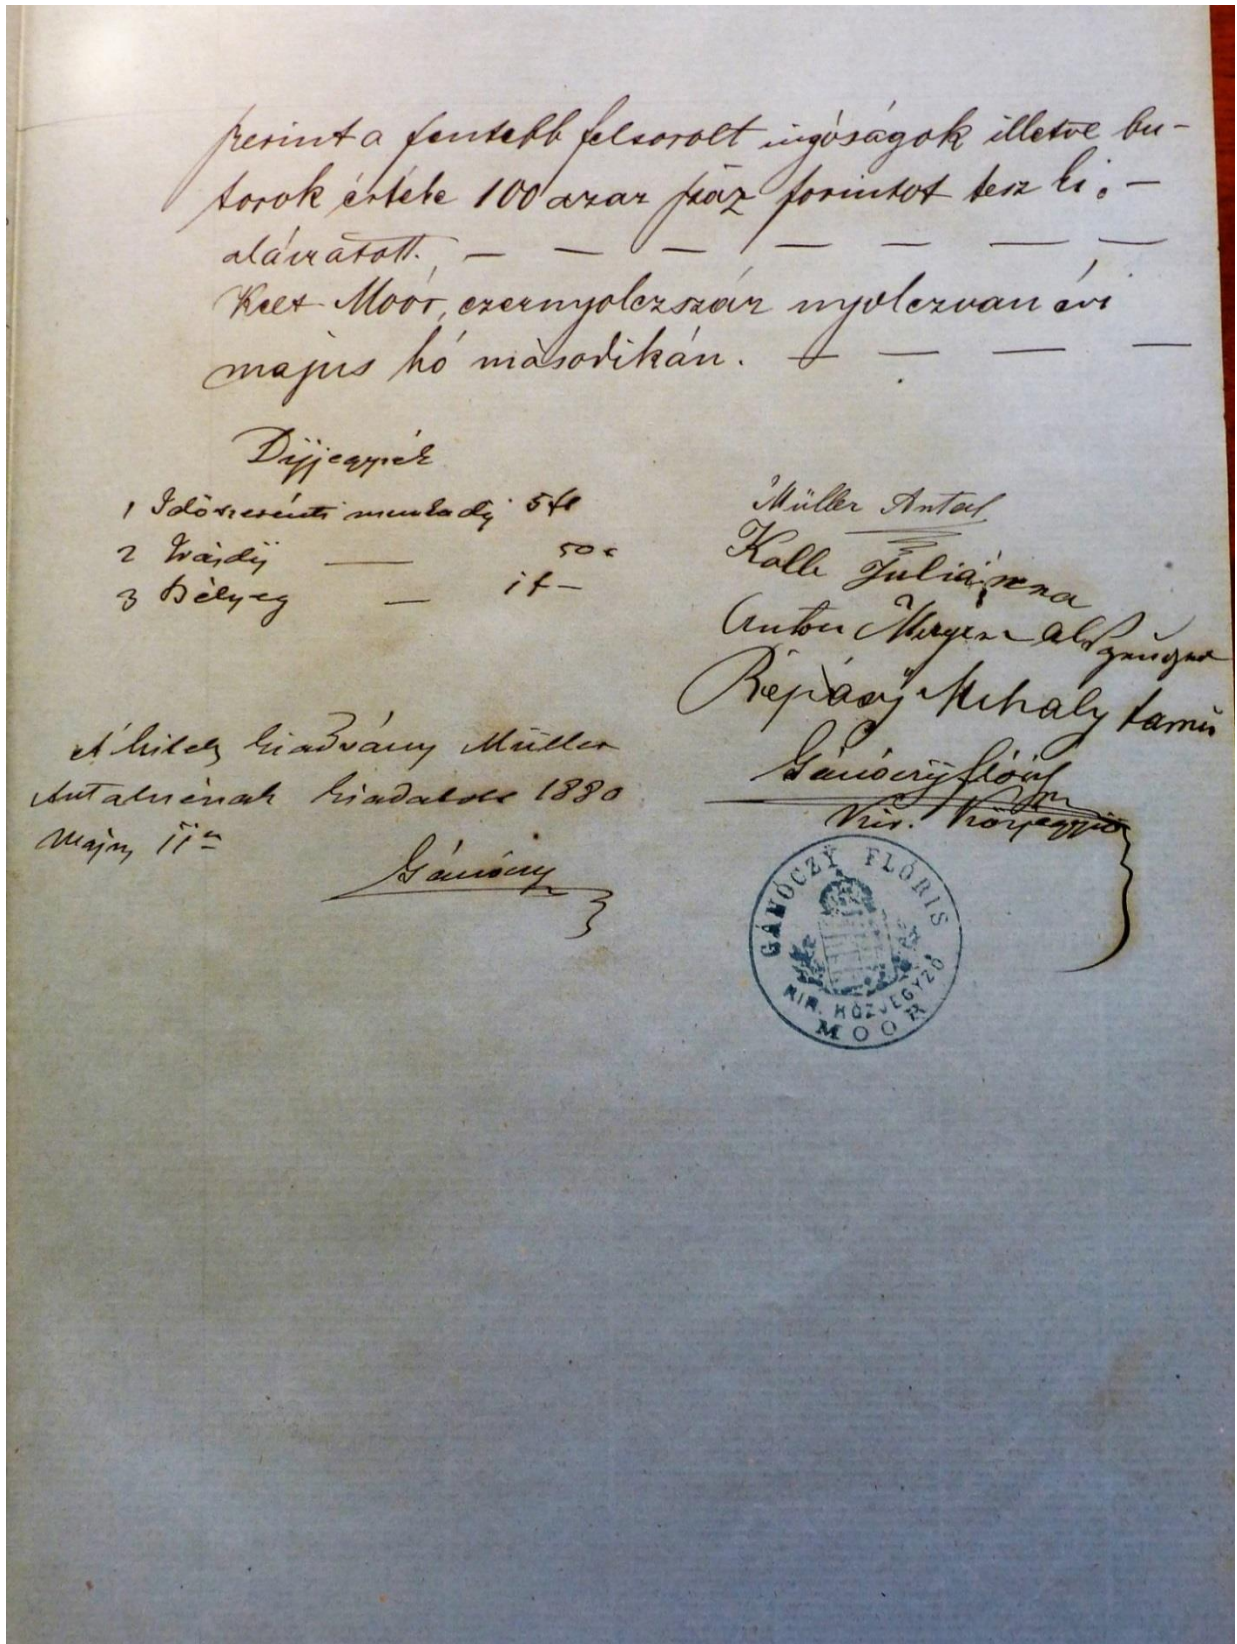 szerint a fentebb felsorolt ingóságok illetve bu-
torok értéke 100 azaz száz forintot tesz ki. —
aláiratott. — — — — — — —
Kelt Moór, ezernyolczszáz nyolczvan évi
majus hó másodikán. — — — —
Dijjegyzék
1 Időszerénti munkadij 5 fl
2 Irásdij — 50 c
3 Bélyeg — 1 f —
Müller Antal
Kolb Juliánna
Anton Mergen als Zeuger
Répásÿ Mihaly tanu
Gánóczy Flóris
Kir. Közjegyző
A hiteles kiadvány Müller
Antalnénak kiadatott 1880
Máju 11n
Gánóczy
GÁNÓCZY FLÓRIS
KIR. KÖZJEGYZŐ
MOOR